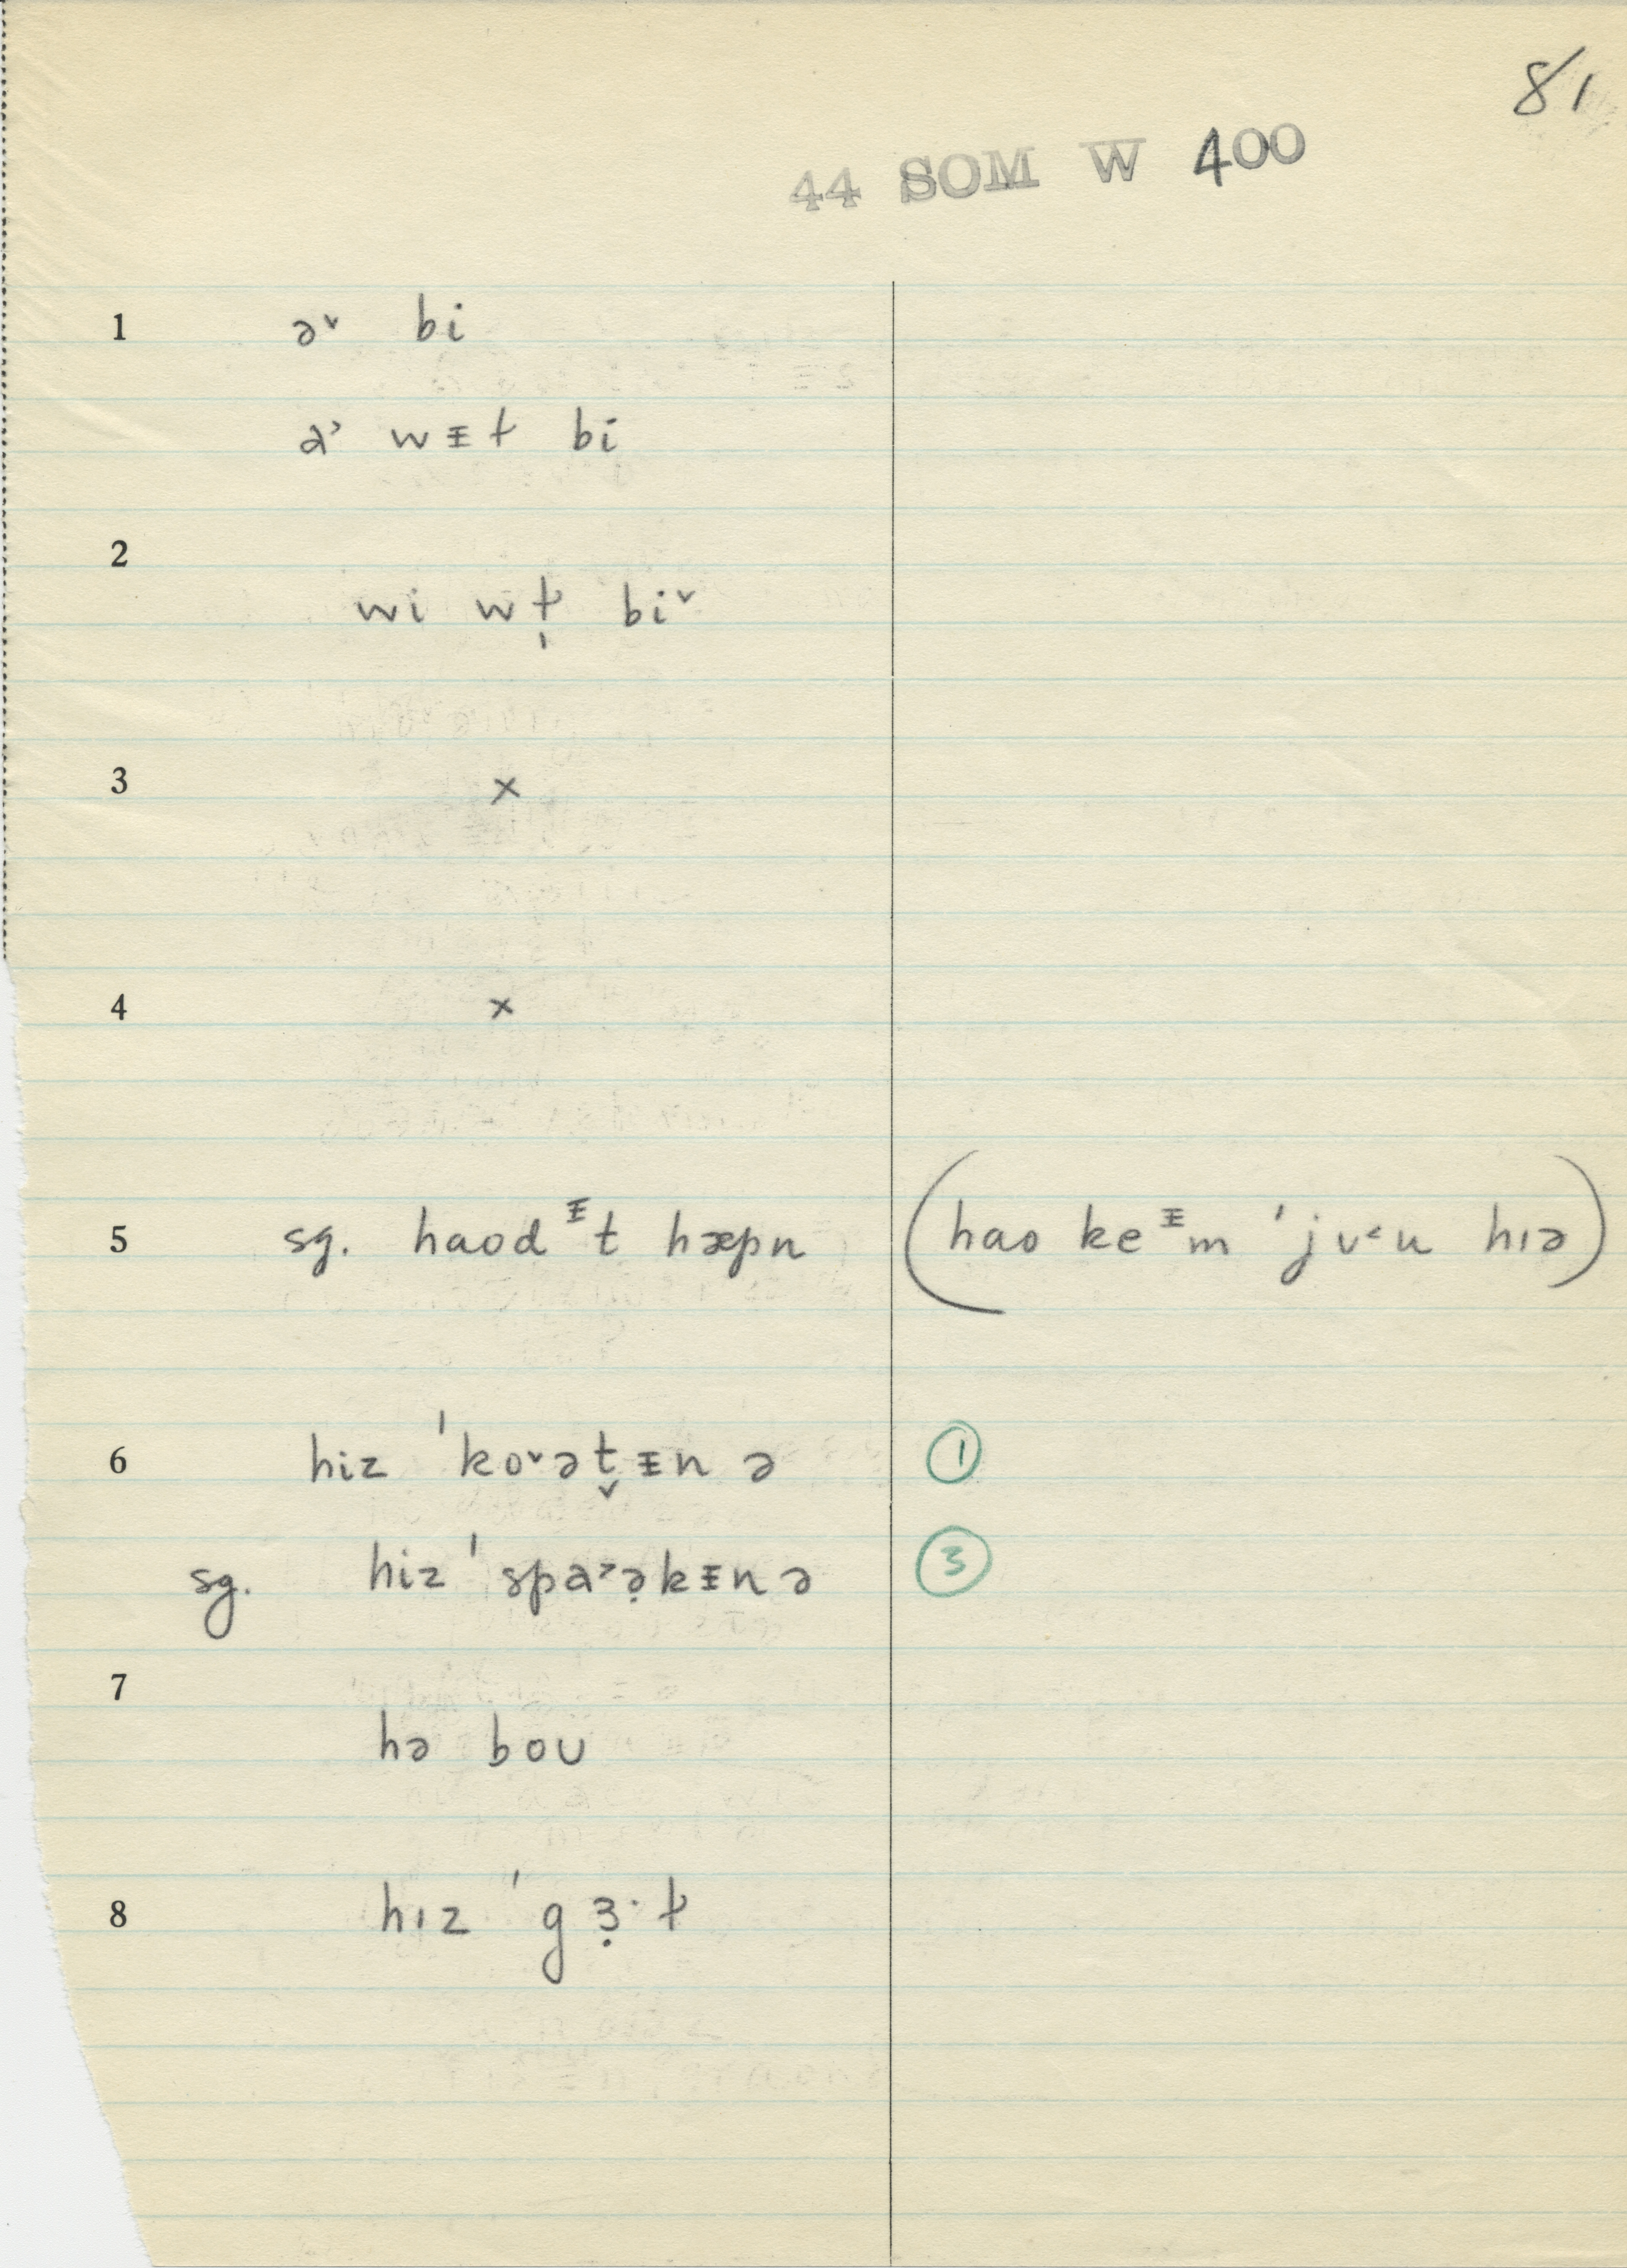 81
44 SOM W 400
1 ə˅ bi
ɑ˃ wᵻɫ bi
2
wi wɫ̩ bi˅
3 ×
4 ×
5 sg. haodᵻt hæpn (hao keᵻm ˈjʊ˂u hɪə)
6 hiz ˈko˅ət̬ᵻn ə ①
sg. hiz ˈspa˃ə̣kᵻn ə ③
7
hə boʊ
8 hɪz ˈgɜ̣·ɫ